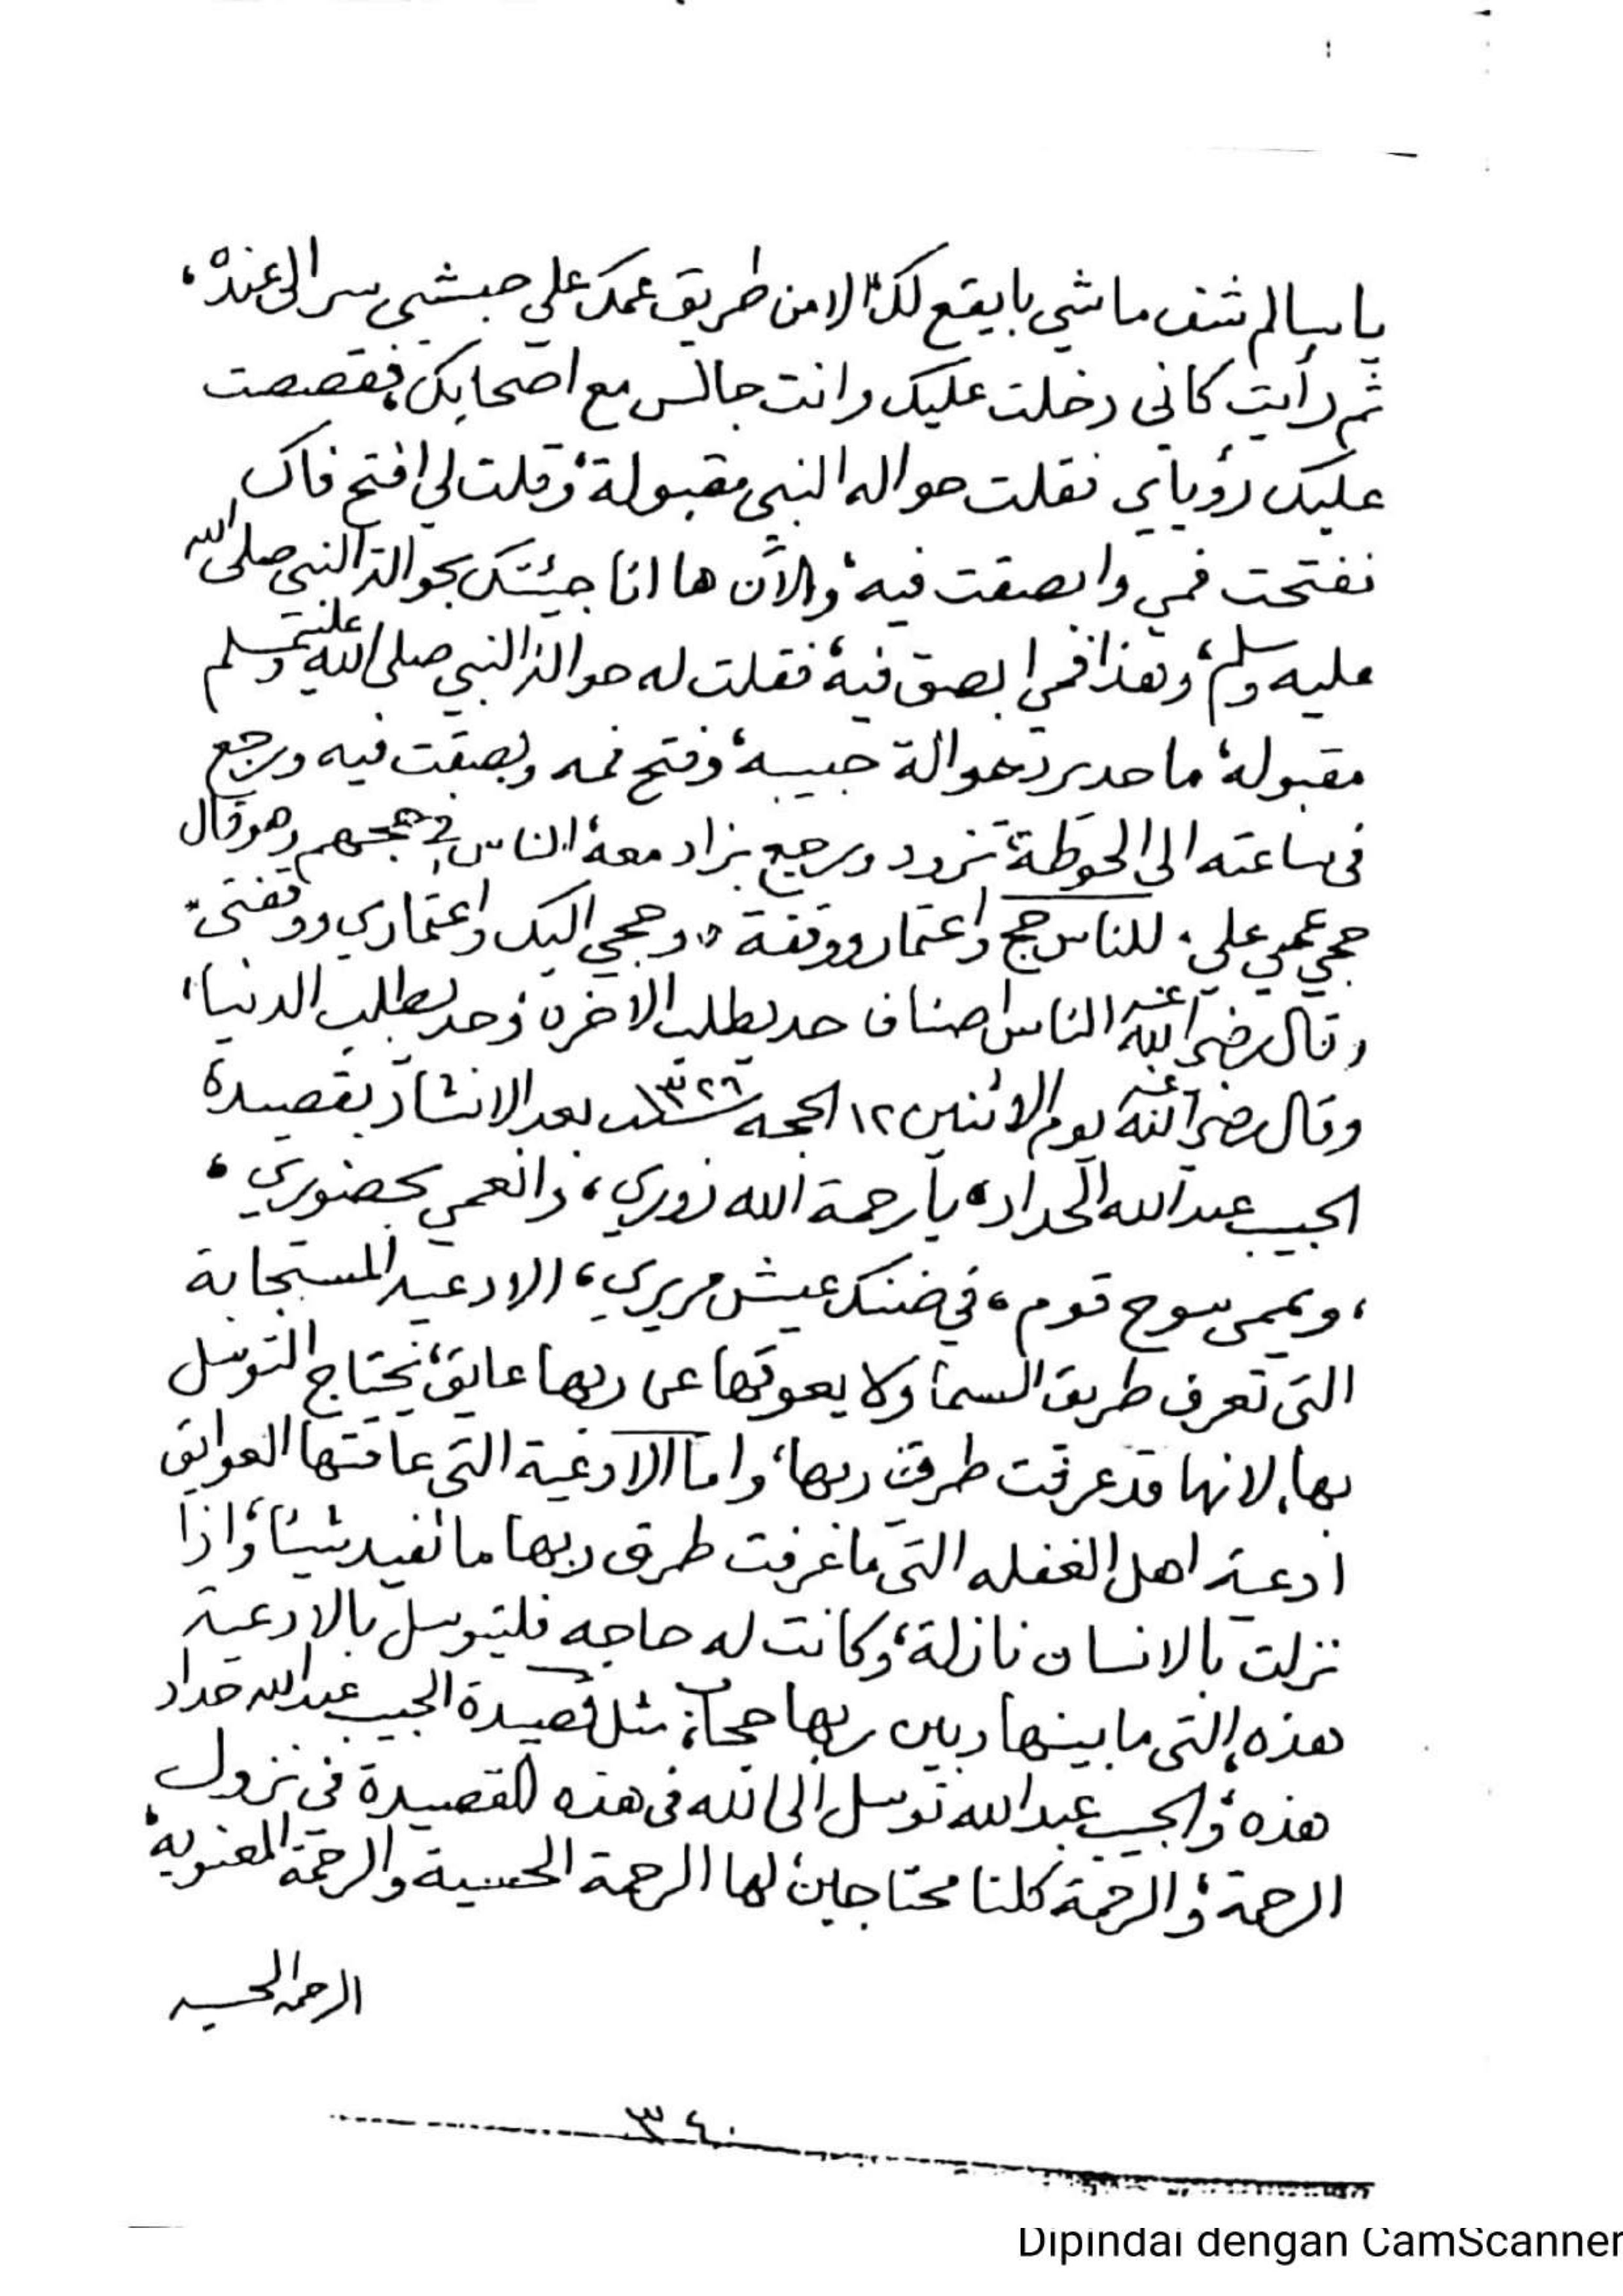 يا سالم شف ما شي بايقع لك الا من طريق عمك علي حبشي سر الى عنده،
ثم رأيت كاني دخلت عليك وانت جالس مع اصحابك، فقصصت
عليك رؤياي فقلت حواله النبي مقبولة، وقلت لي افتح فاك
ففتحت فمي وابصقت فيه، والآن ها انا جيئتك بحوالة النبي صلى الله
عليه وسلم، وهذا فمي ابصق فيه، فقلت له حوالة النبي صلى الله عليه وسلم
مقبولة، ما حد يرد حوالة حبيبه، وفتح فمه وبصقت فيه ورجع
في ساعته الى الحوطة تزود ورجع بزاد معه، الناس في حجهم وهو قال
حجي عمي علي، للناس حج واعتمار ووقفة * وحجي اليك واعتماري ووقفتي *
وقال رضي الله عنه الناس اصناف حد يطلب الاخره وحد يطلب الدنيا،
وقال رضي الله عنه يوم الاثنين ١٢ الحجه سنة ١٣٢٦ بعد الانشاد بقصيدة
الحبيب عبد الله الحداد، يا رحمة الله زوري، وانعمي بحضوري،
، ويممي سوح قوم، في ضنك عيش مريري، الادعيه المستجابة
التي تعرف طريق السما ولا يعوقها عن ربها عايق، نحتاج التوسل
بها، لانها قد عرفت طريق ربها، واما الادعية التي عاقتها العوايق
ادعية اهل الغفله التي ما عرفت طرق ربها ما تفيد شيئا، واذا
نزلت بالانسان نازلة، وكانت له حاجه فليتوسل بالادعية
هذه، التي ما بينها وبين ربها حجاب، مثل قصيدة الحبيب عبد الله حداد
هذه، والحبيب عبد الله توسل الى الله في هذه القصيدة في نزول
الرحمة، والرحمة كلنا محتاجين لها الرحمة الحسية والرحمة المعنوية،
الرحمة الحسيه
٣٤٠
Dipindai dengan CamScanner